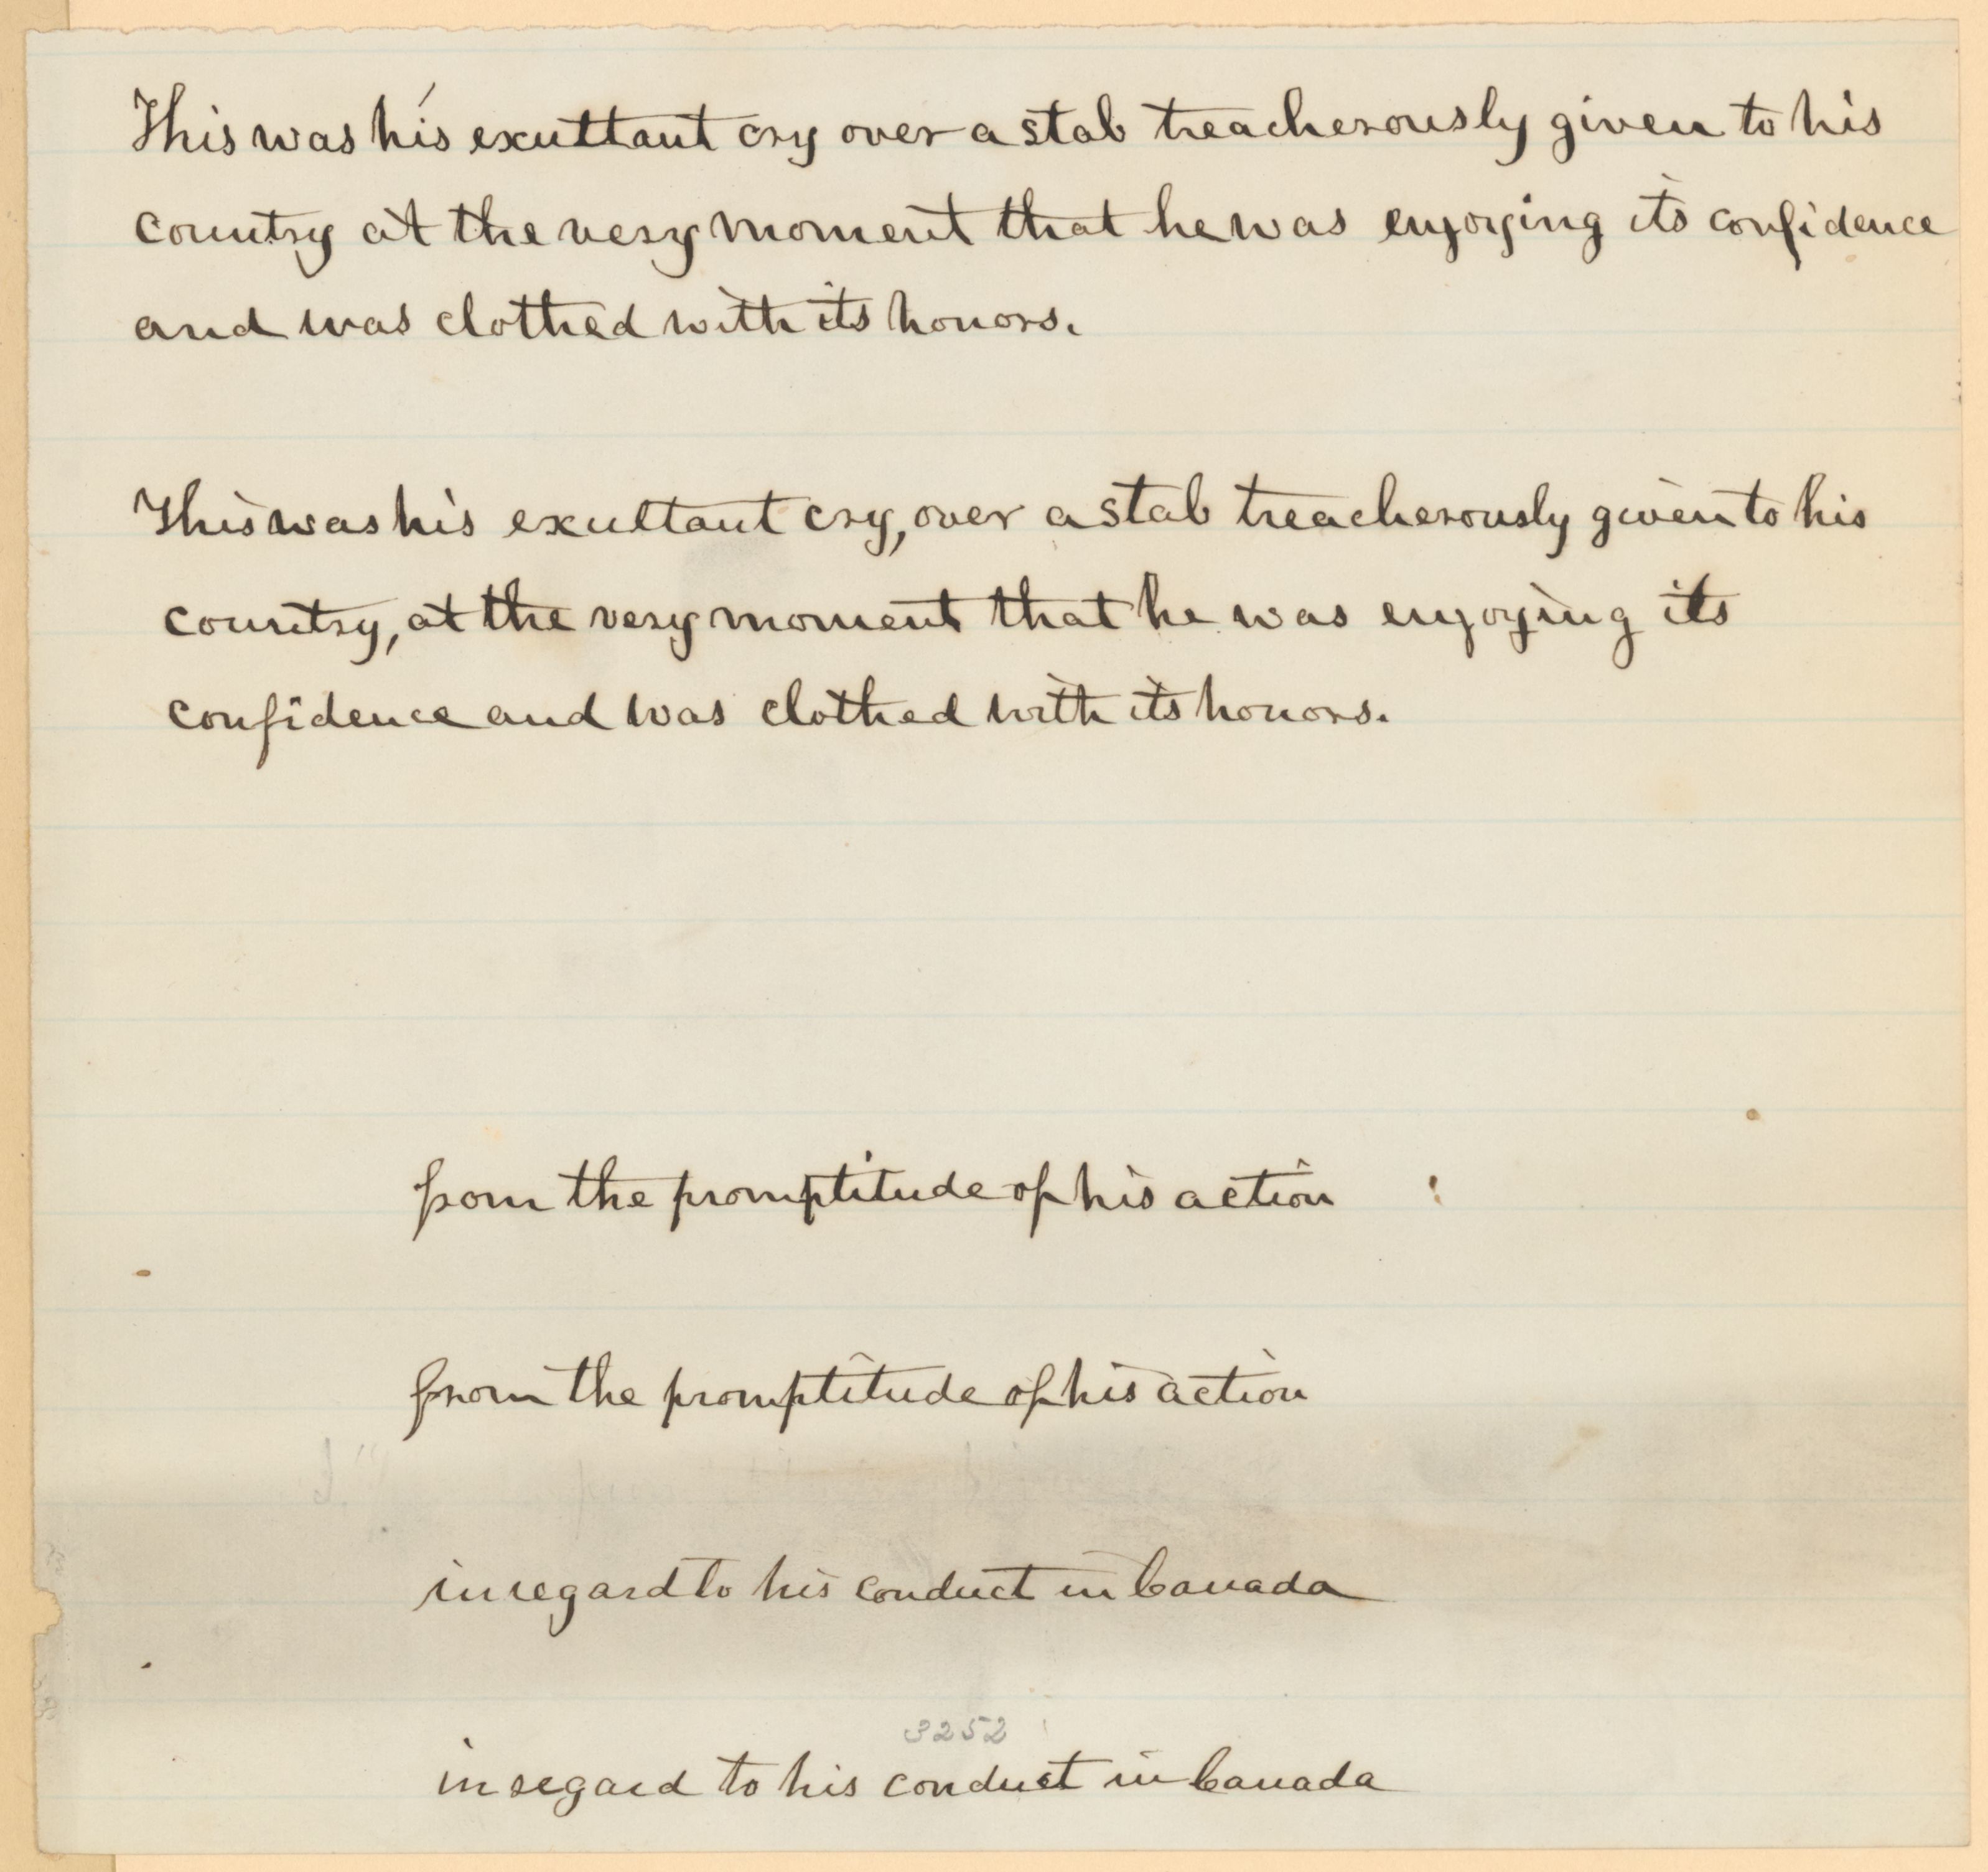 This was his exultant cry over a stab treacherously given to his
country at the very moment that he was enjoying its confidence
and was clothed with its honors.
This was his exultant cry, over a stab treacherously given to his
country, at the very moment that he was enjoying its
confidence and was clothed with its honors.
from the promptitude of his action
from the promptitude of his action
in regard to his conduct in Canada
3252
in regard to his conduct in Canada